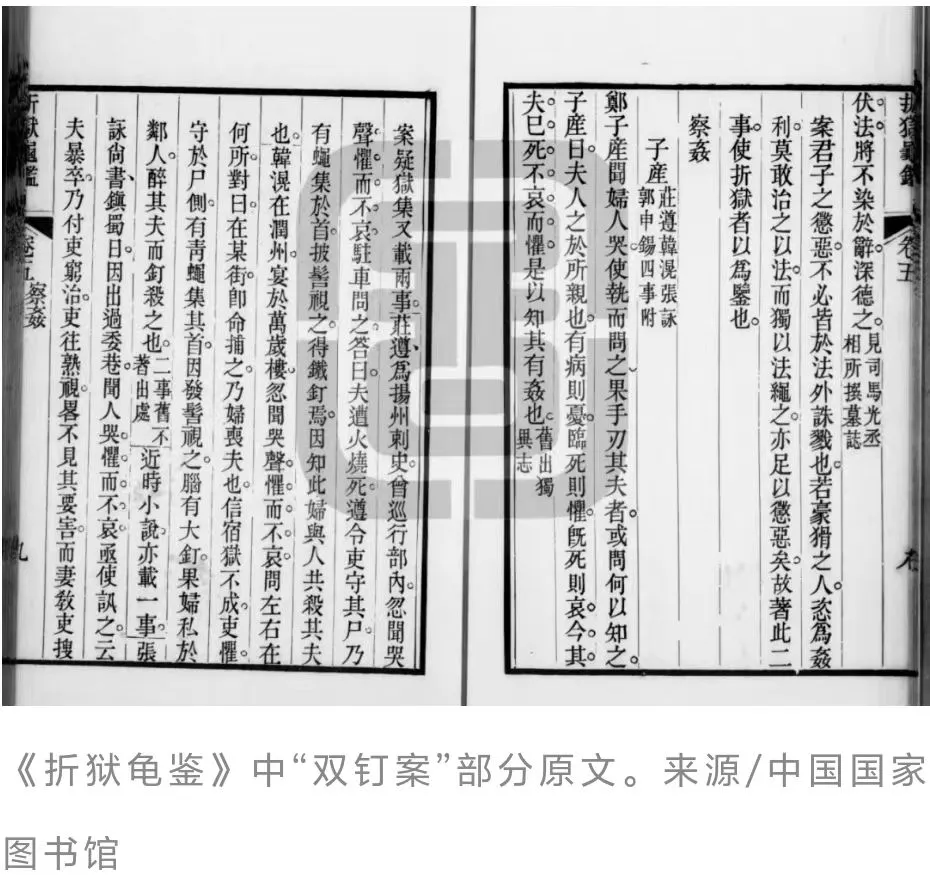 折獄龜鑑 卷五 九
伏法。將不染於辭。深德之。見司馬光丞相所撰墓誌
案君子之懲惡。不必皆於法外誅戮也。若豪猾之人。恣為姦
利。莫敢治之以法。而獨以法繩之。亦足以懲惡矣。故著此二
事。使折獄者以為鑒也。
察姦
子產 莊遵韓滉張詠郭申錫四事附
鄭子產聞婦人哭。使執而問之。果手刃其夫者。或問何以知之。
子產曰。夫人之於所親也。有病則憂。臨死則懼。既死則哀。今其
夫已死。不哀而懼。是以知其有姦也。舊出獨異志
案疑獄集又載兩事。莊遵為揚州刺史。曾巡行部內。忽聞哭
聲。懼而不哀。駐車問之。荅曰。夫遭火燒死。遵令吏守其尸。乃
有蠅集於首。披髻視之。得鐵釘焉。因知此婦與人共殺其夫
也。韓滉在潤州。宴於萬歲樓。忽聞哭聲。懼而不哀。問左右在
何所。對曰在某街。即命捕之。乃婦喪夫也。信宿獄不成。吏懼。
守於尸側。有青蠅集其首。因發髻視之。腦有大釘。果婦私於
鄰人。醉其夫而釘殺之也。二事舊不著出處 近時小說。亦載一事。張
詠尚書鎮蜀日。因出過委巷。聞人哭。懼而不哀。亟使訊之。云
夫暴卒。乃付吏窮治。吏往熟視。畧不見其要害。而妻教吏搜
折獄龜鑑 卷五 察姦 九
《折狱龟鉴》中“双钉案”部分原文。来源/中国国家
图书馆